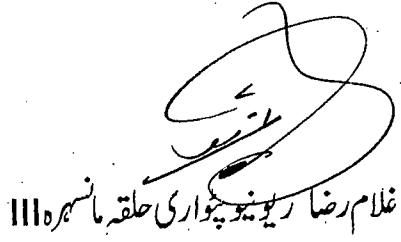 غلام رضا ریونیو پٹواری حلقہ مانسہرہ III